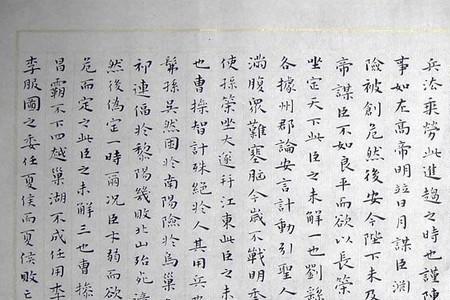 兵法乘勞此進趨之時也謹陳
事如左高帝明並日月謀臣淵
險被創危然後安今陛下未及
帝謀臣不如良平而欲以長策
坐定天下此臣之未解一也劉繇
各據州郡論安言計動引聖人
滿腹眾難塞胸今歲不戰明年
使孫策坐大遂并江東此臣之未
也曹操智計殊絕於人其用兵也
髴孫吳然困於南陽險於烏巢
祁連偪於黎陽幾敗北山殆死潼
然後偽定一時爾況臣才弱而欲
危而定之此臣之未解三也曹操
昌霸不下四越巢湖不成任用李
李服圖之委任夏侯而夏侯敗亡